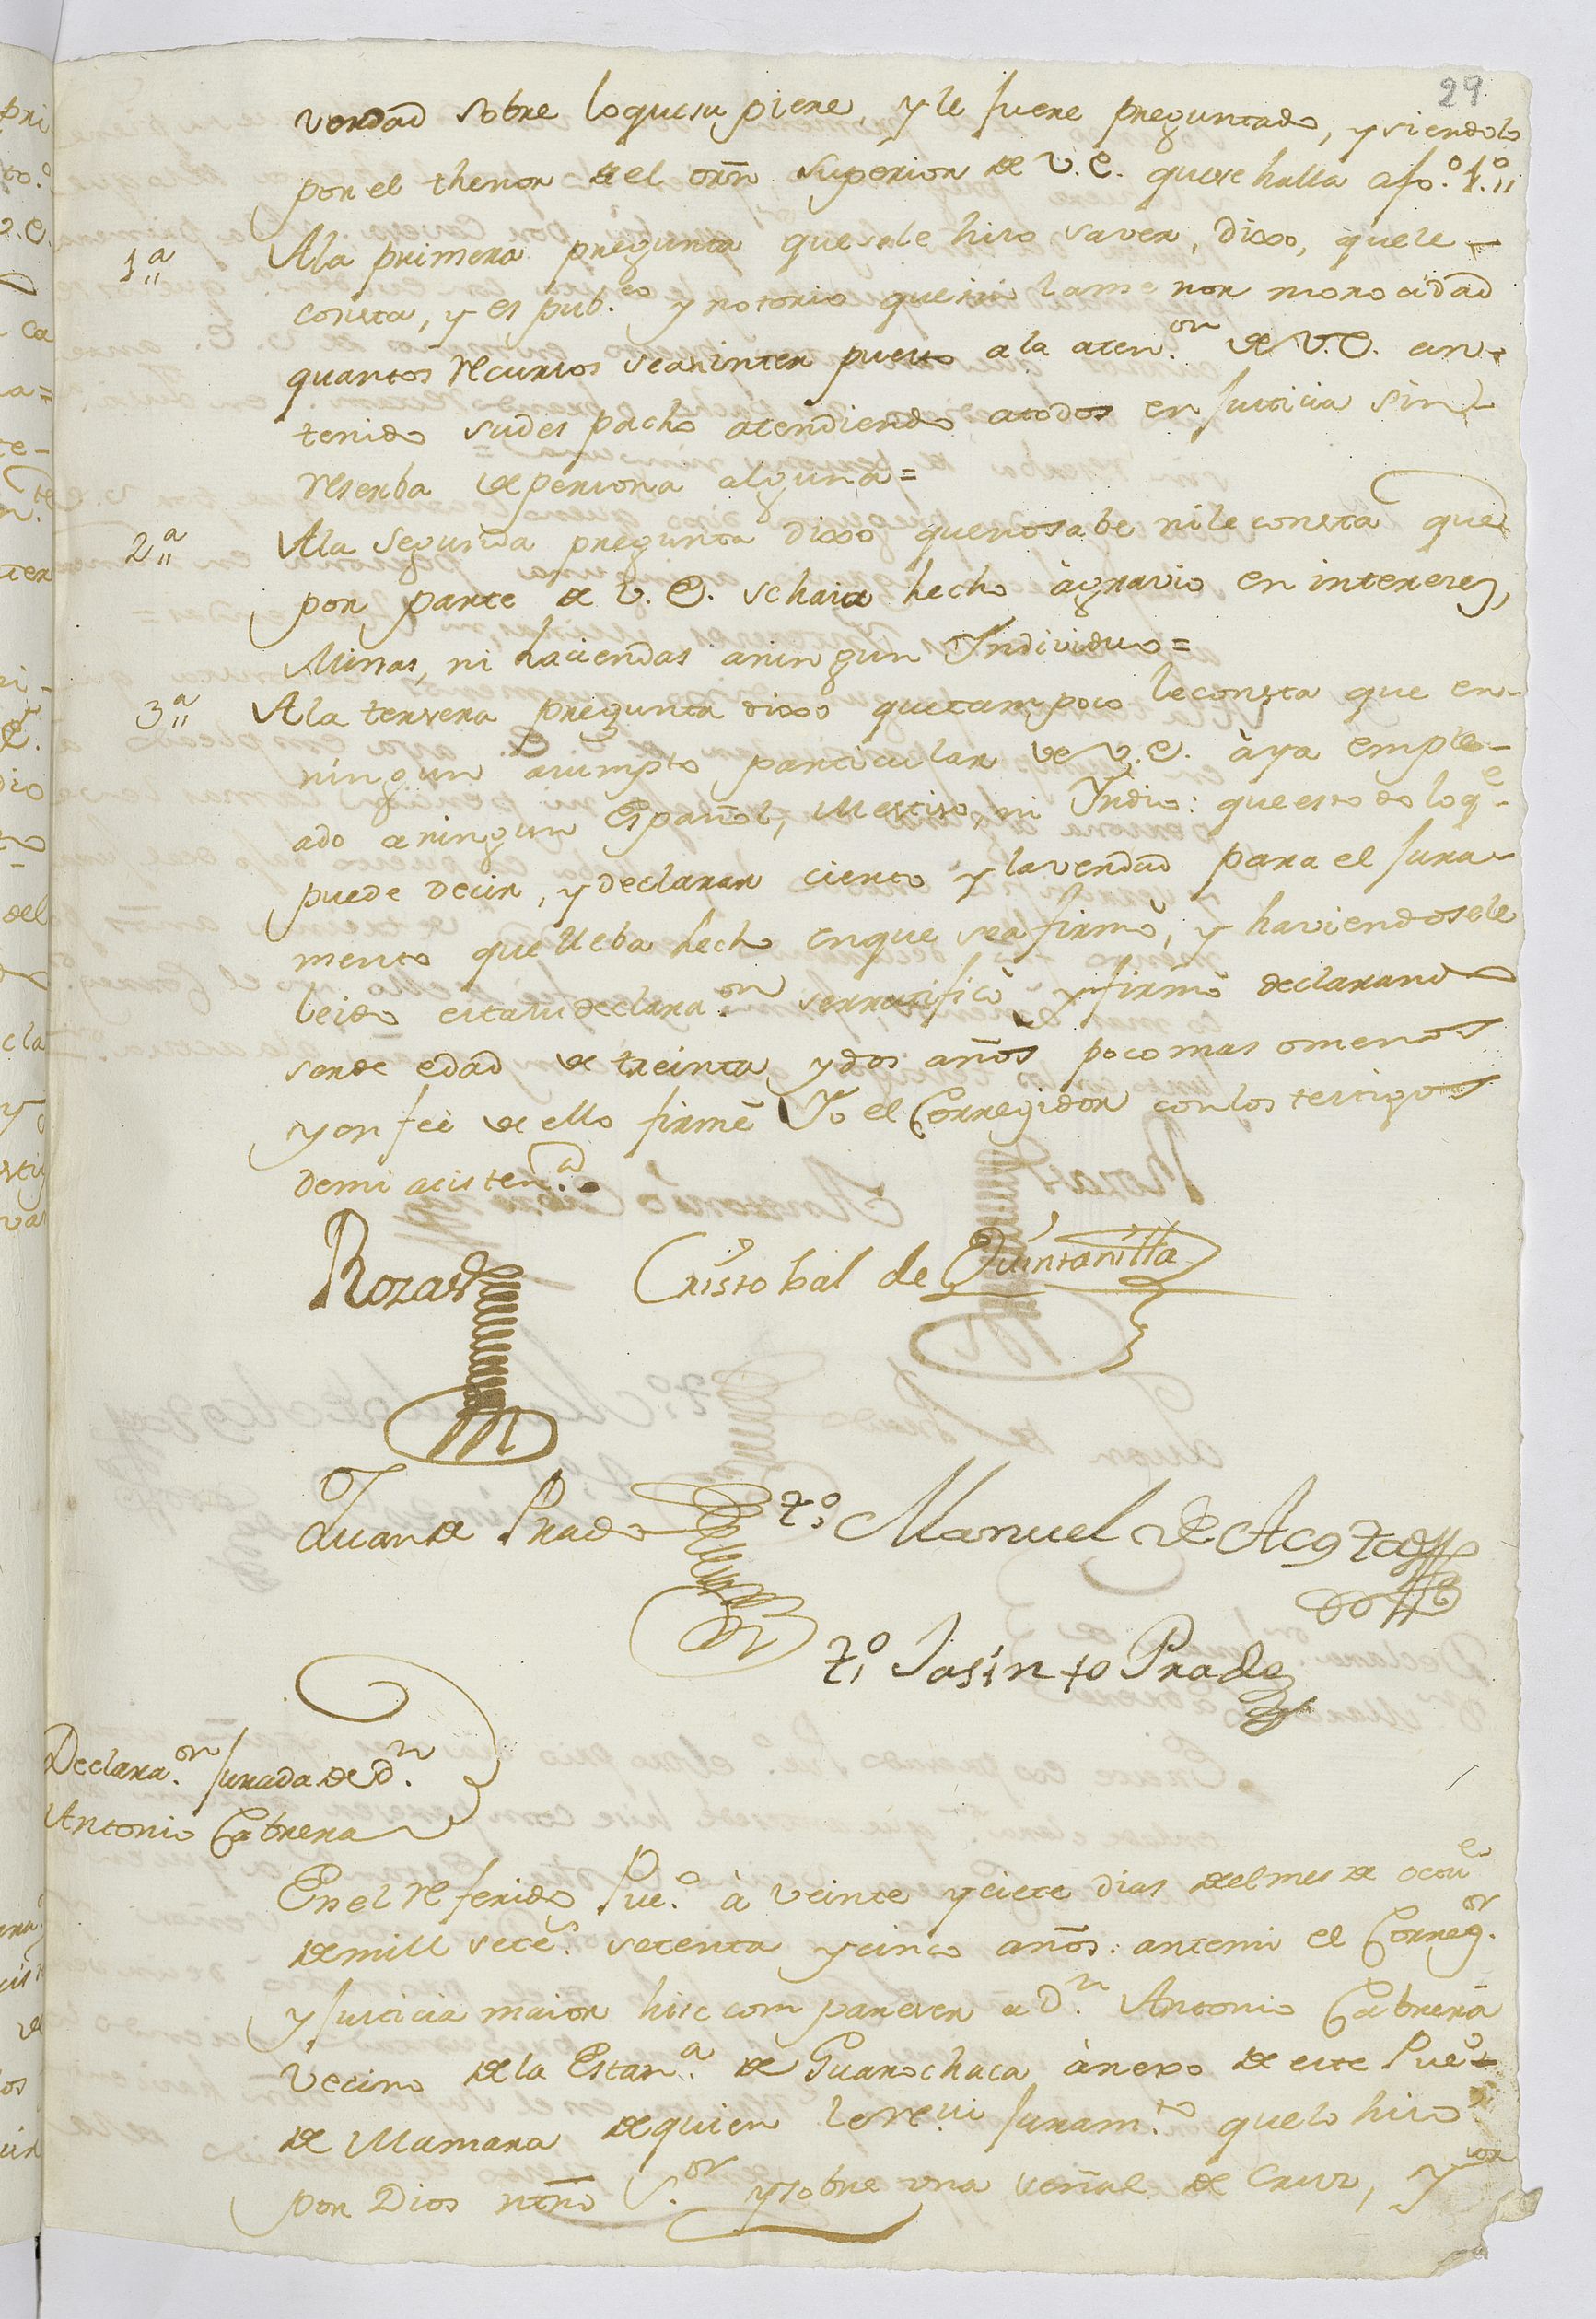 29
verdad sobre loquesu piere, y le fuere preguntado, y siendolo
por el thenor del orñ superior de V.E. quese halla afo.º 1.º,,
1.ª,, Ala primera pregunta quesele hiso saver, dixo, quele
consta, y es pub.co y notorio quesin lame nor morocidad
quantos recursos sean inter puesto a la aten.on de V.E. an
tenido sudes pacho atendiendo atodos en Justicia sin
reserba de persona alguna=
2.ª,, Ala segunda pregunta dixo quenosabe nile consta que
por parte de V.E. sehaia hecho àgravio en intereses,
Minas, ni haciendas aningun Individuo=
3.ª,, Ala tersera pregunta dixo quetampoco leconsta que en
ningun asumpto particular de V.E. àya emple-
ado aningun Español, Mestiso, ni Yndio: que estodo loq.e
puede decir, y declarar cierto y laverdad para el Jura-
mento que lleba hecho enque seafirmò, y haviendosele
leido estasudeclara.on serratificò y firmò declarando
serde edad de treinta y dos años pocomas omenos
yen feè de ello firmè Yo el Corregidor conlos testigos
demi asisten.ª
Rozas Cristobal de Quintanilla
Juan de Prado t.º Manuel de Acosta
t.º Jasinto Prado
Declara.on Jurada de D.n
Antonio Cabrera
Enel referido Pue.º à veinte ysiete dias del mes de octu.e
demill sete.s setenta ycinco años: antemi el Correg.or
y Justicia maior hise com pareser a D.n Antonio Cabrera
Vecino dela Estan.ª de Guarochaca ànexo de este Pue.º
de Mamara dequien le reçivi Juram.to quelo hiso
por Dios ntrõ S.or ysobre una señal de Cruz, y